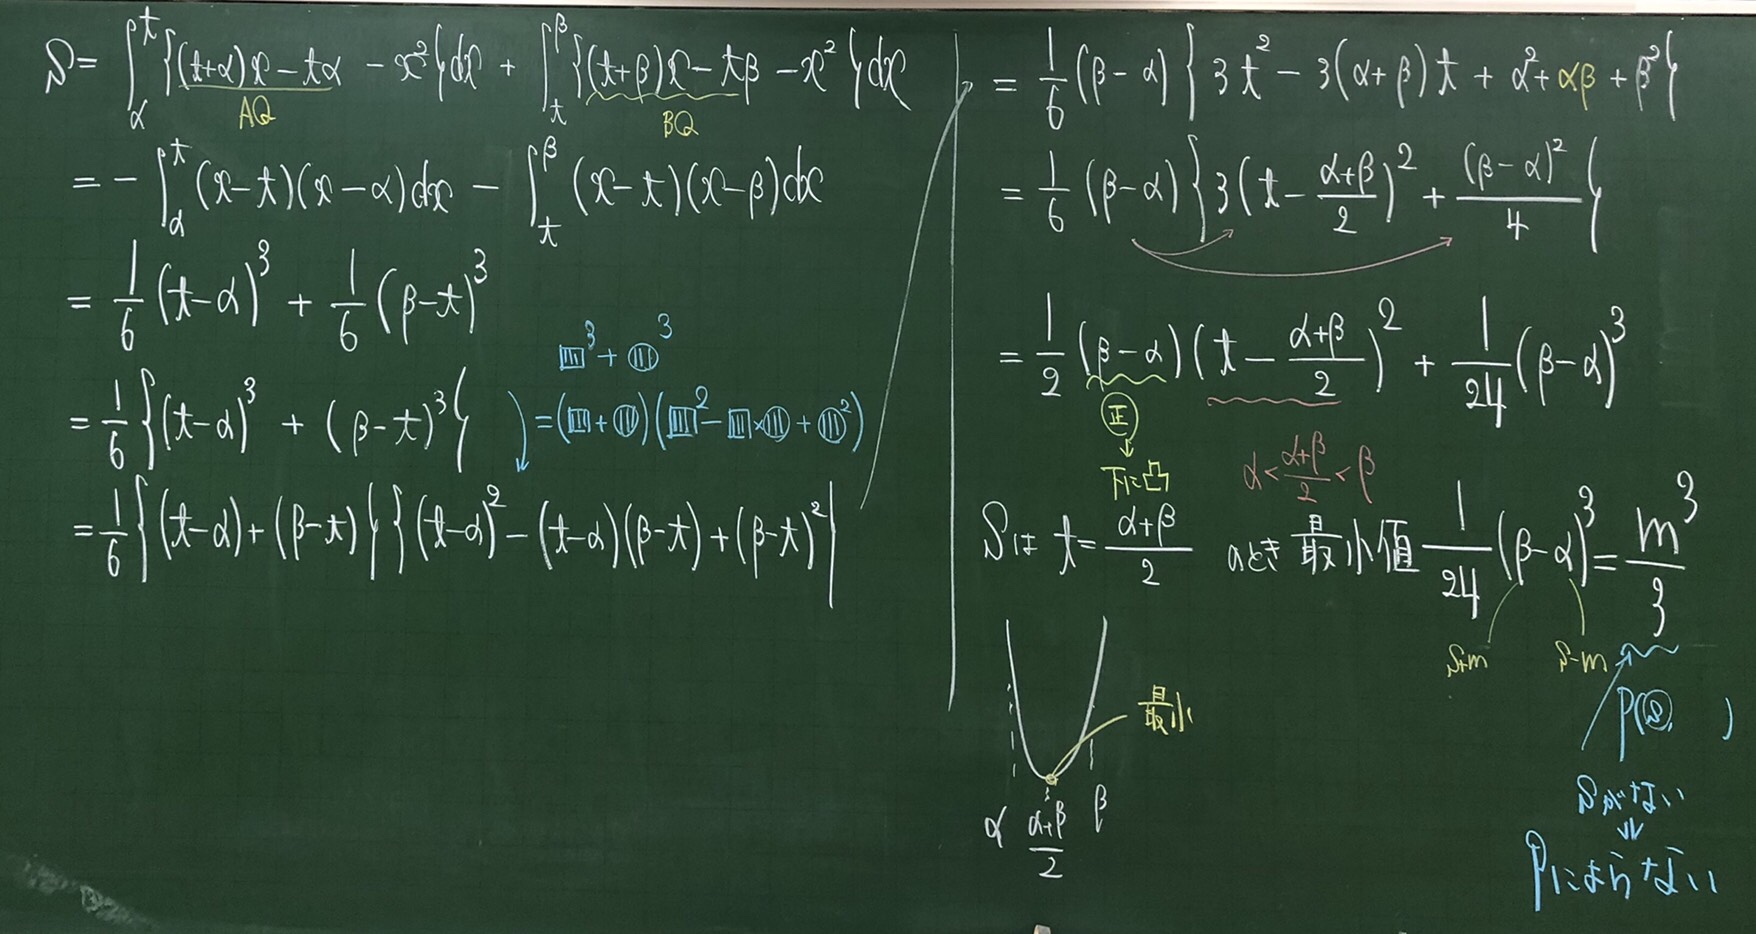 S = ∫_α^t {(t+α)x − tα − x²}dx + ∫_t^β {(t+β)x − tβ − x²}dx
AQ BQ
= − ∫_α^t (x−t)(x−α)dx − ∫_t^β (x−t)(x−β)dx
= 1/6 (t−α)³ + 1/6 (β−t)³
▥³ + ◍³
= 1/6 {(t−α)³ + (β−t)³}
= (▥ + ◍)(▥² − ▥×◍ + ◍²)
= 1/6 {(t−α) + (β−t)}{(t−α)² − (t−α)(β−t) + (β−t)²}
= 1/6 (β−α){3t² − 3(α+β)t + α² + αβ + β²}
= 1/6 (β−α){3(t − (α+β)/2)² + (β−α)²/4}
= 1/2 (β−α)(t − (α+β)/2)² + 1/24 (β−α)³
正
↓
下に凸
α < (α+β)/2 < β
Sは t = (α+β)/2 のとき 最小値 1/24 (β−α)³ = m³/3
s+m s−m
最小
α (α+β)/2 β
P(s, )
sがない
⇓
Pによらない